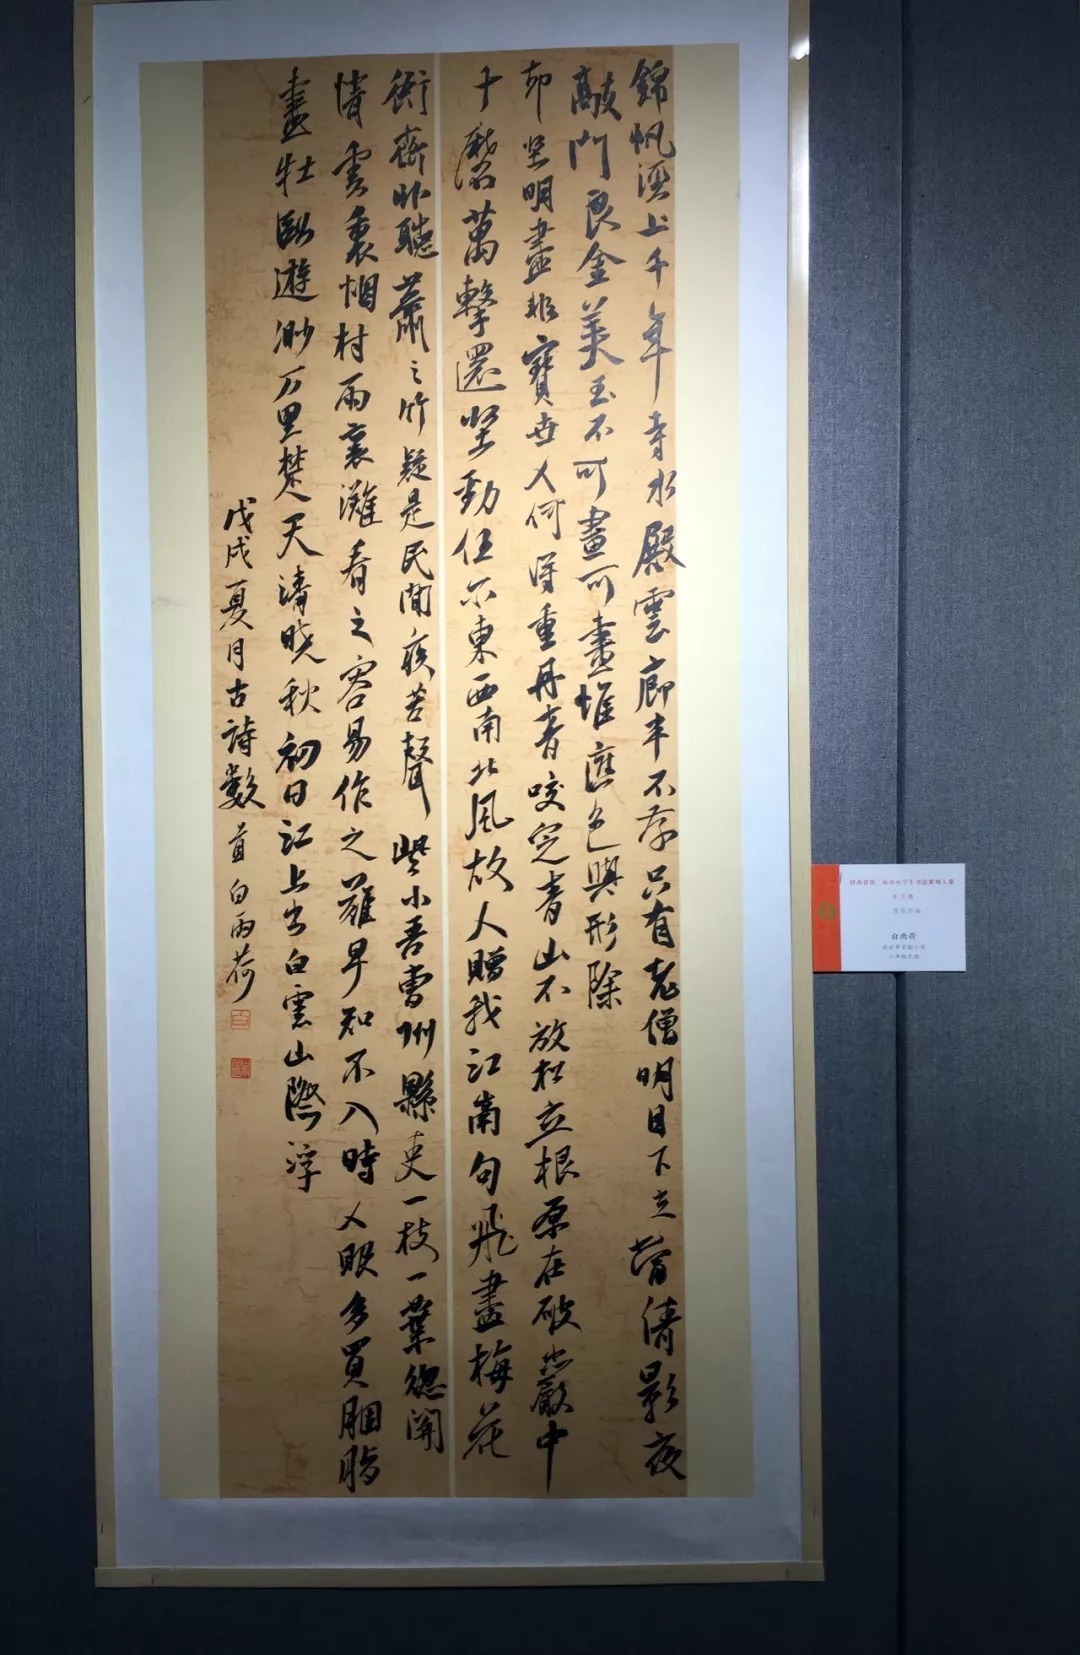 錦帆涇上千年寺水殿雲廊半不存只有老僧明月下立當清影夜
敲門良金美玉不可畫可畫惟應色與形除
却坚明盡非寶世人何得重丹青咬定青山不放松立根原在破巖中
千磨萬擊還坚勁任尔東西南北風故人贈我江南句飛盡梅花
衙齋卧聽蕭之竹疑是民間疾苦聲些小吾曹州縣吏一枝一葉總關
情雲裏烟村雨裏灘看之容易作之難早知不入時人眼多買胭脂
畫牡卧遊渺万里楚天清曉秋初日江上出白雲山際浮
戊戌夏月古詩数首白雨荷
白雨荷